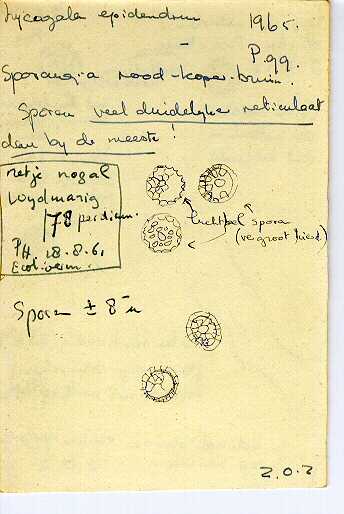 Lycogala epidendrum
1965.
P.99.
Sporangia rood-koper-bruin.
Sporen veel duidelijker reticulaat
dan bij de meeste!
netje nogal
wydmazig
78 per diam.
PH 28.8.61
spore
(vergroot
Sporen ± 8 µ
2.0.2